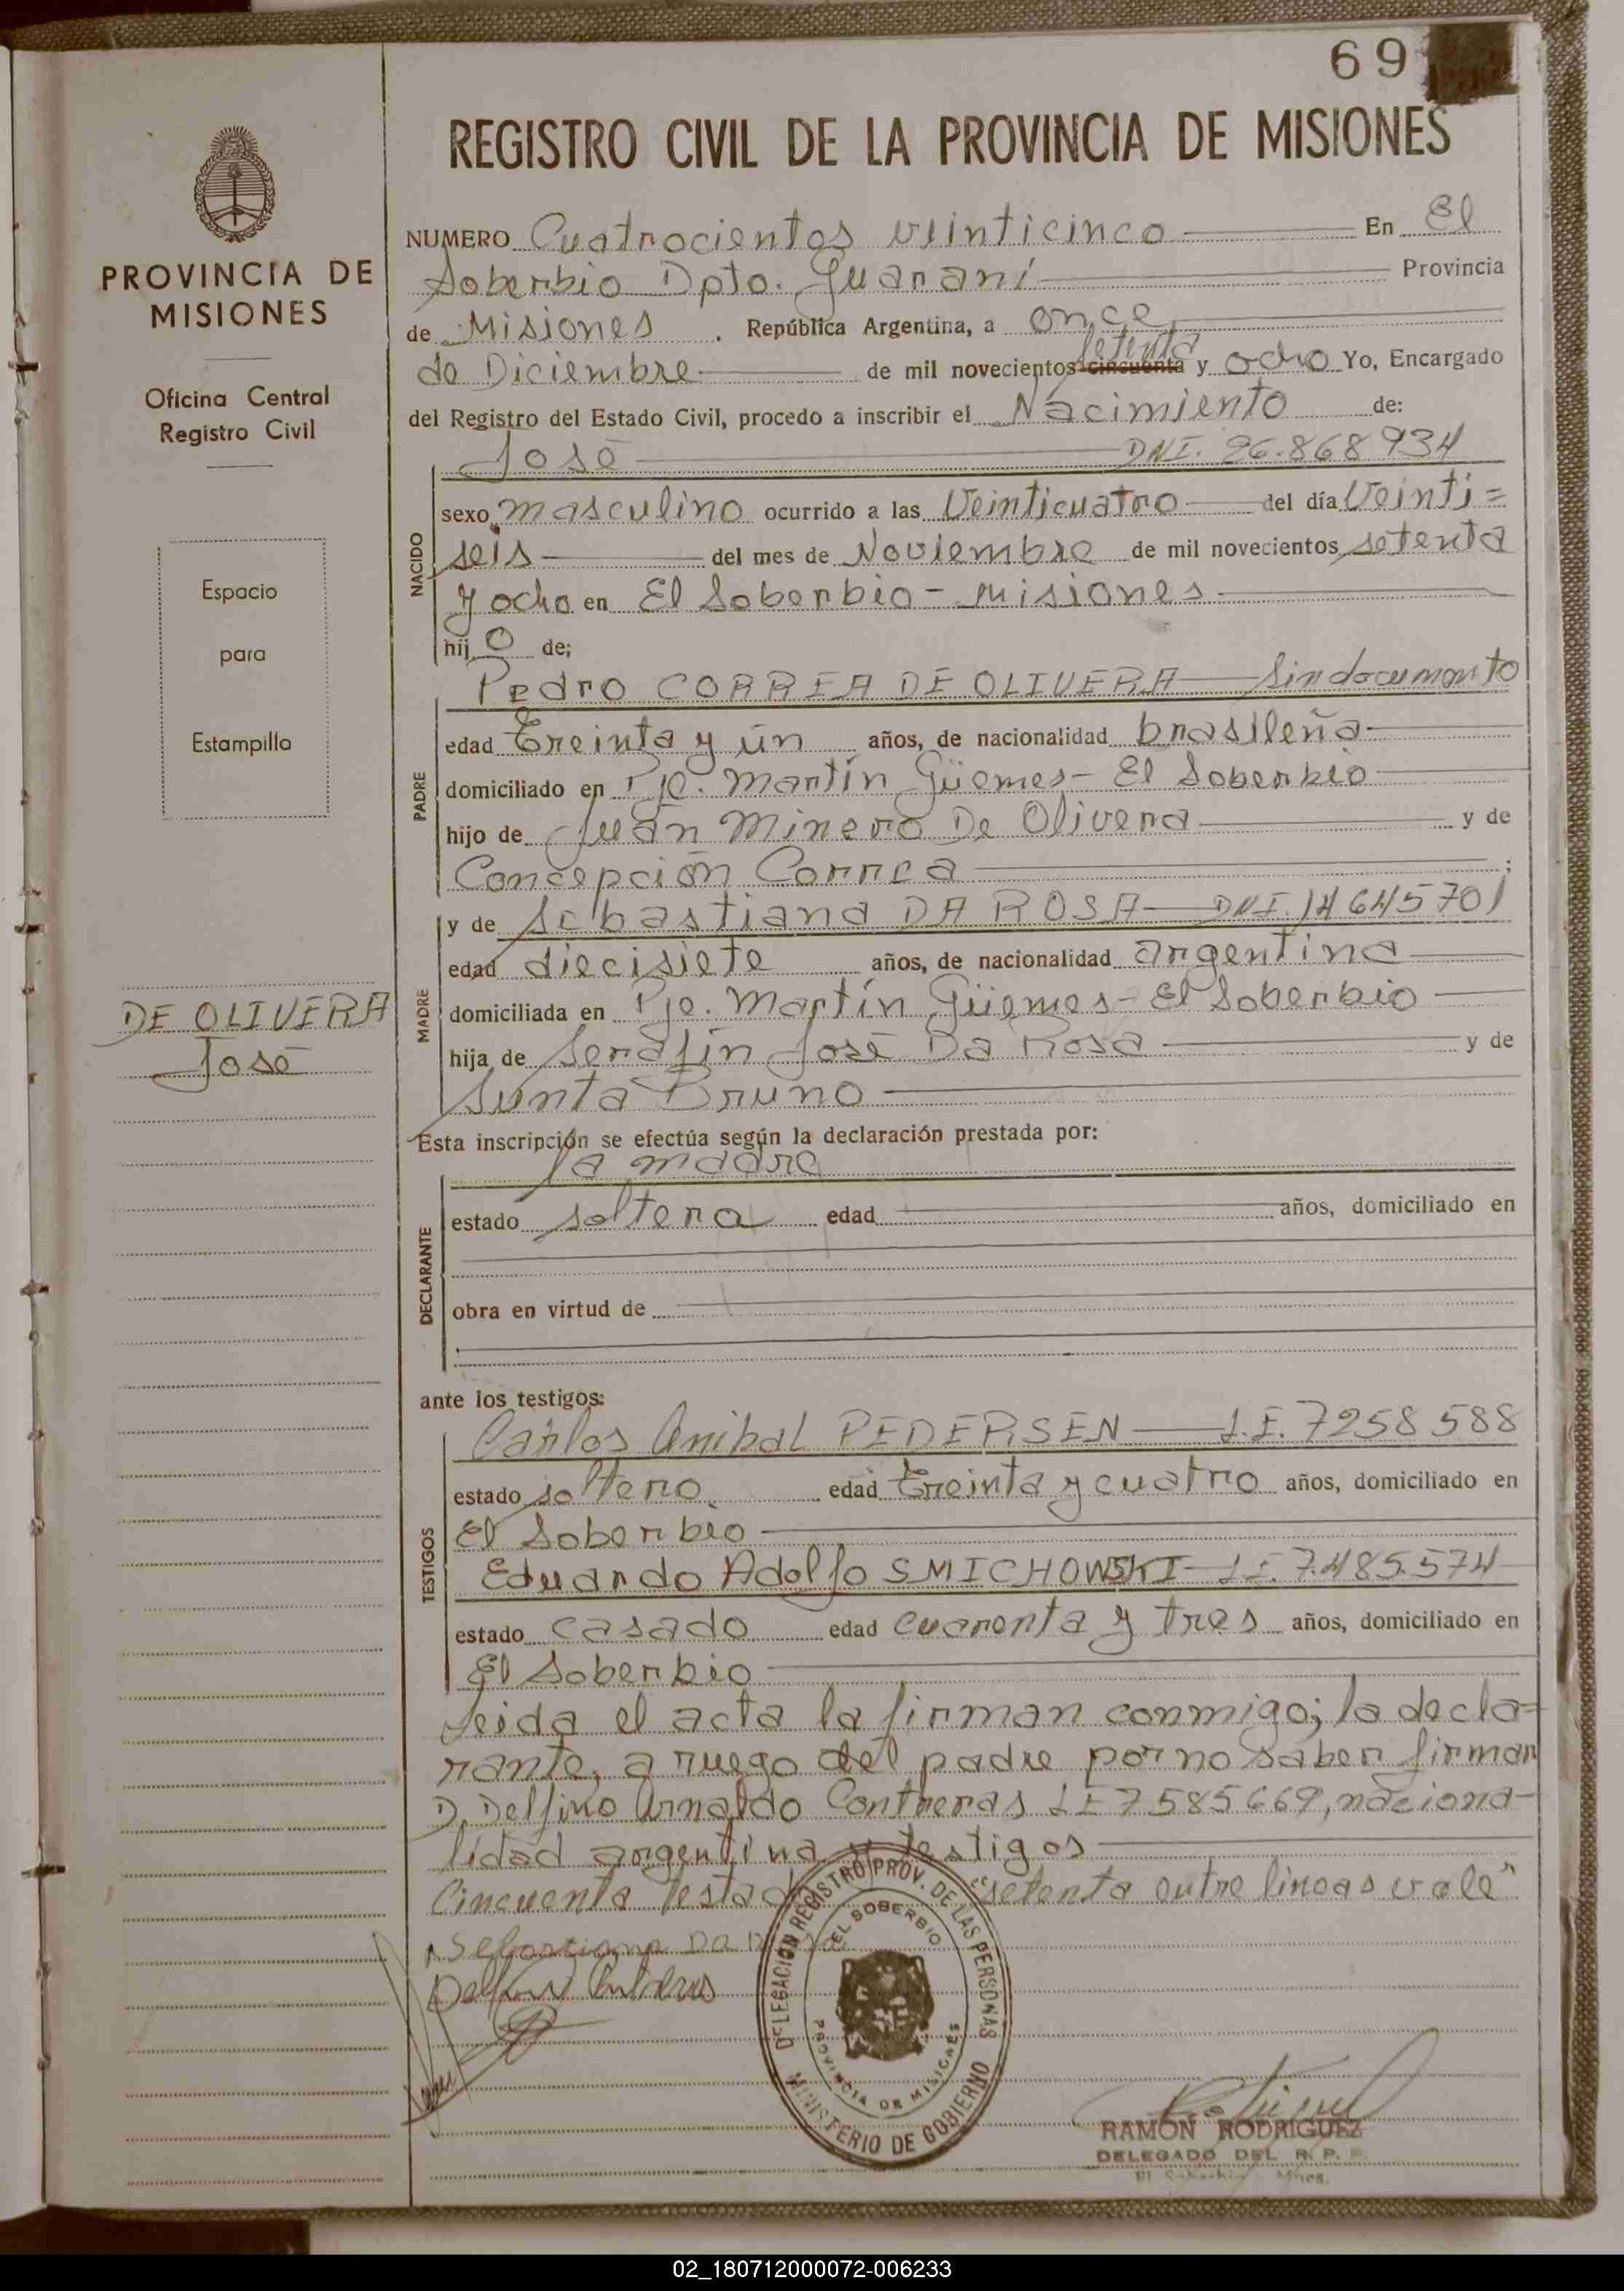 69
REGISTRO CIVIL DE LA PROVINCIA DE MISIONES
PROVINCIA DE
MISIONES
Oficina Central
Registro Civil
Espacio
para
Estampilla
DE OLIVERA
José
NUMERO Cuatrocientos veinticinco En El
Soberbio Dpto. Guaraní Provincia
de Misiones . República Argentina, a once
setenta
de Diciembre de mil novecientos cincuenta y ocho Yo, Encargado
del Registro del Estado Civil, procedo a inscribir el Nacimiento de:
José DNI. 26.868934
NACIDO
sexo masculino ocurrido a las Veinticuatro del día Veinti=
seis del mes de Noviembre de mil novecientos setenta
y ocho en El Soberbio - Misiones
hij o de;
Pedro CORREA DE OLIVERA Sin documento
PADRE
edad Treinta y ún años, de nacionalidad brasileña
domiciliado en Pje. Martín Güemes - El Soberbio
hijo de Juan Minero De Olivera y de
Concepción Correa ;
MADRE
y de Sebastiana DA ROSA DNI. 14645701
edad diecisiete años, de nacionalidad argentina
domiciliada en Pje. Martín Güemes - El Soberbio
hija de Serafín José Da Rosa y de
Sunta Bruno
Esta inscripción se efectúa según la declaración prestada por:
la madre
DECLARANTE
estado soltera edad años, domiciliado en
obra en virtud de
ante los testigos:
Carlos Anibal PEDERSEN L.E. 7258588
TESTIGOS
estado soltero edad Treinta y cuatro años, domiciliado en
El Soberbio
Eduardo Adolfo SMICHOWSKI - L.E. 7.485.574
estado casado edad cuarenta y tres años, domiciliado en
El Soberbio
Leida el acta la firman conmigo; la decla=
rante, a ruego del padre por no saber firmar
D. Delfino Arnaldo Contreras LE 7585669, naciona-
lidad argentina y testigos
Cincuenta testado "setenta entre lineas vale"
Sebastiana Da Rosa
DELEGACION REGISTRO PROV. DE LAS PERSONAS
EL SOBERBIO
PROVINCIA DE MISIONES
MINISTERIO DE GOBIERNO
RAMON RODRIGUEZ
DELEGADO DEL R. P. P.
El Soberbio Mnes.
02_180712000072-006233